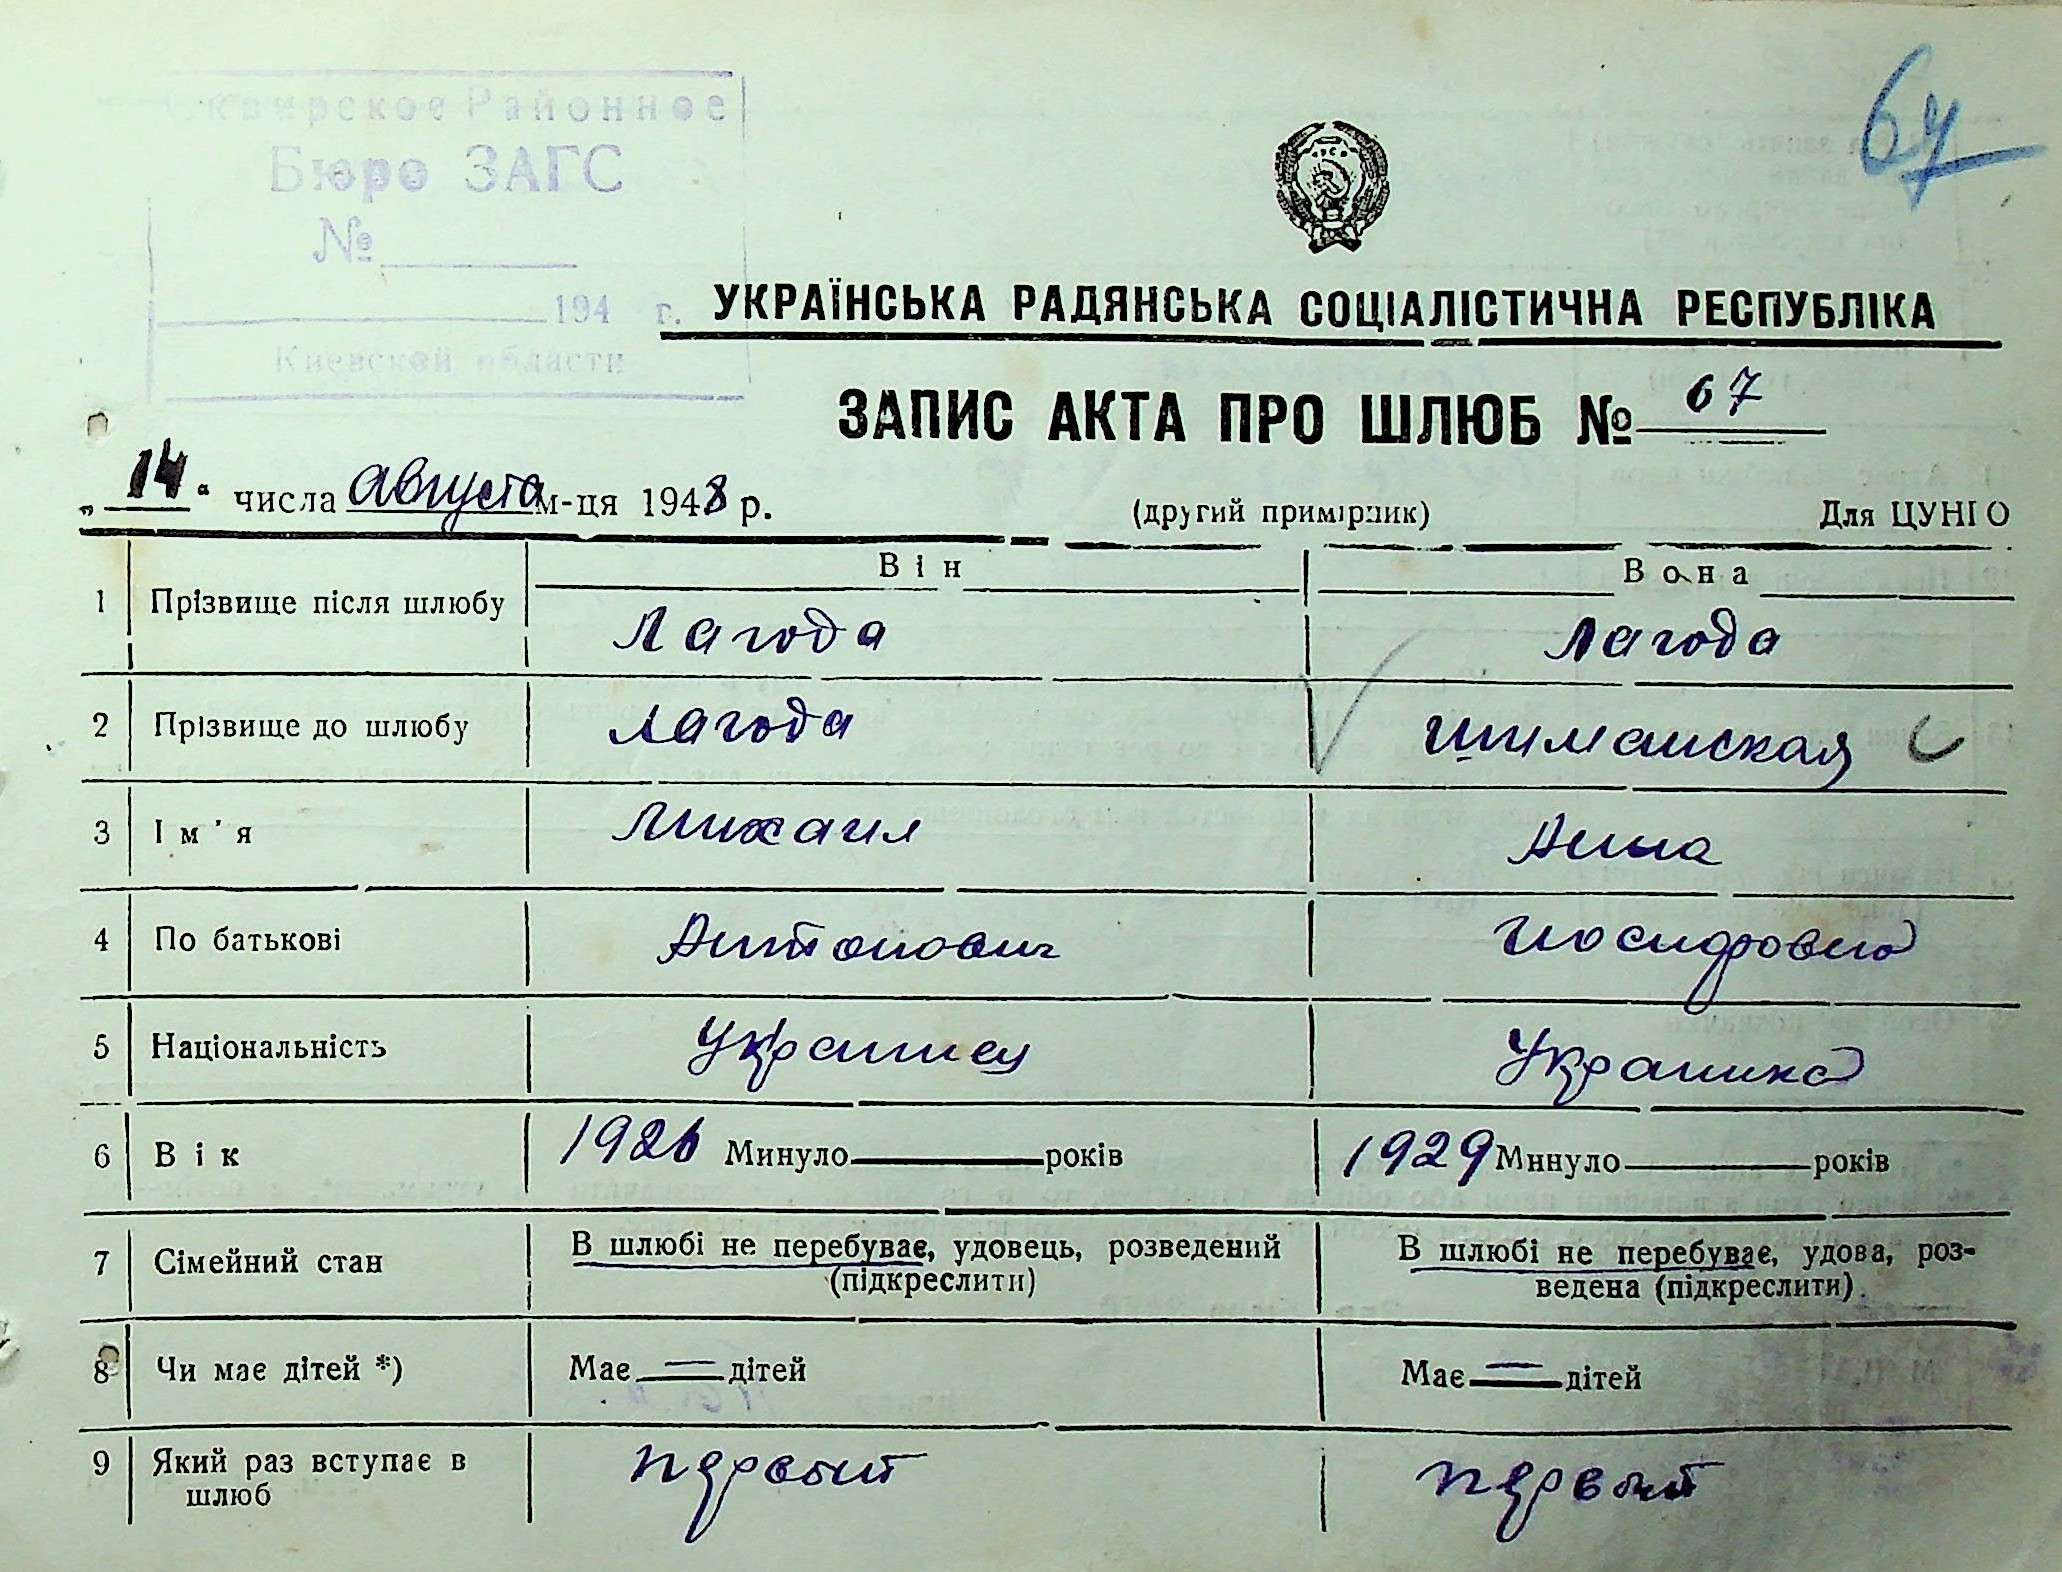 Сквирское Районное
Бюро ЗАГС
№
194 г.
Киевской области
67
УКРАЇНСЬКА РАДЯНСЬКА СОЦІАЛІСТИЧНА РЕСПУБЛІКА
ЗАПИС АКТА ПРО ШЛЮБ № 67
„14“ числа августа м-ця 1948 р. (другий примірник) Для ЦУНГО
Він Вона
1 Прізвище після шлюбу Лагода Лагода
2 Прізвище до шлюбу Лагода Шиманская
3 Ім'я Михаил Анна
4 По батькові Антонович Иосифовна
5 Національність Украинец Украинка
6 Вік 1926 Минуло років 1929 Минуло років
7 Сімейний стан В шлюбі не перебуває, удовець, розведений В шлюбі не перебуває, удова, роз-
(підкреслити) ведена (підкреслити).
8 Чи має дітей *) Має = дітей Має = дітей
9 Який раз вступає в первый первый
шлюб